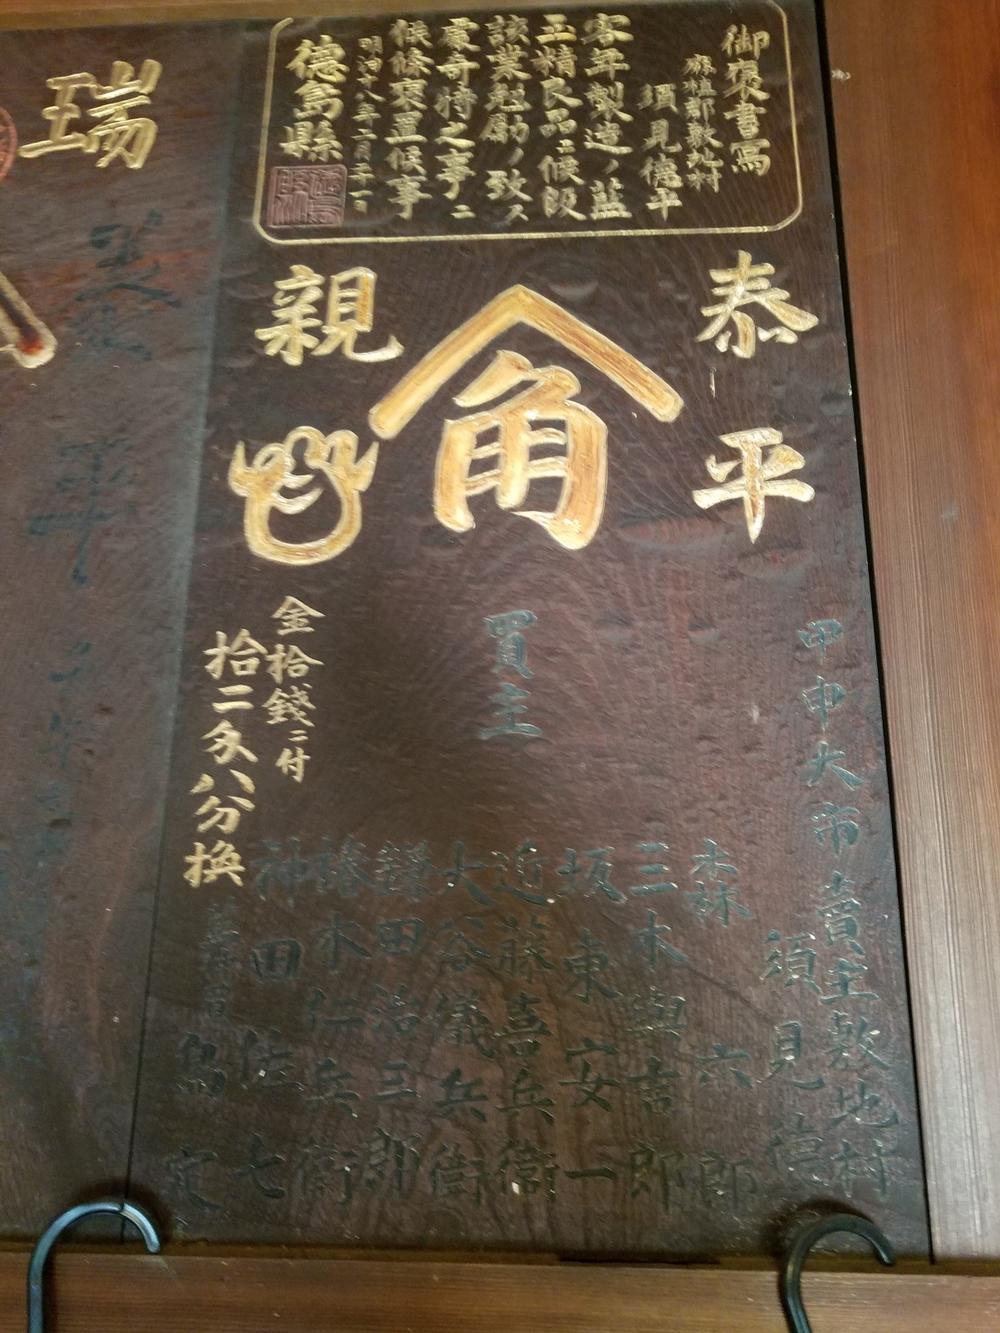 御褒書寫
麻植郡敷地村
須見德平
客年製造ノ藍
玉精良品ニ候段
該業勉勵ノ致ス
處奇特之事ニ
候條褒置候事
明治十八年二月二十一日
德島縣
泰平
角
親
甲申大市賣主敷地村
須見德
買主
木林六郎
三木與吉郎
坂東安一
近藤喜兵衞
大谷儀兵衞
鎌田治三郎
椿水仁兵衞
神田佐七
金拾錢ニ付
拾二匁八分換
島定
瑞